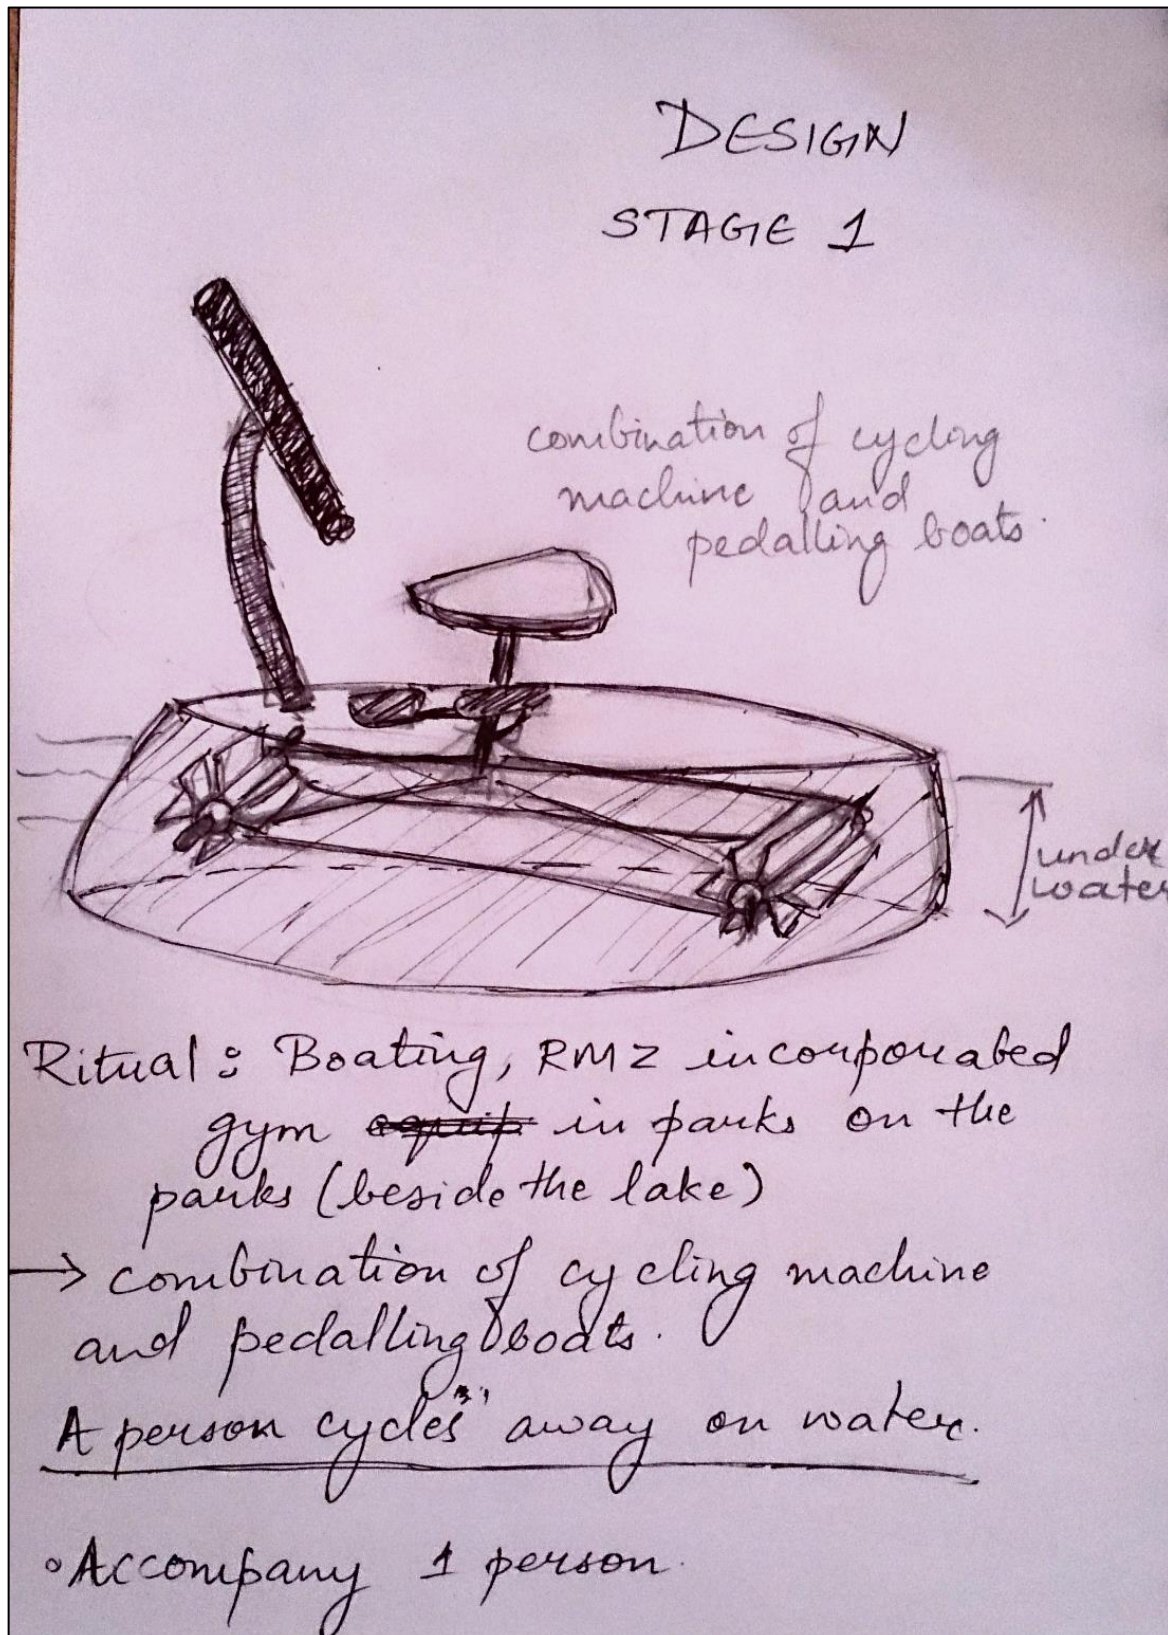 DESIGN
STAGE 1
combination of cycling
machine and
pedalling boats.
under
water
Ritual : Boating, RMZ incorporated
gym equip. in parks on the
parks (beside the lake)
→ combination of cycling machine
and pedalling boats.
A person cycles away on water.
• Accompany 1 person.